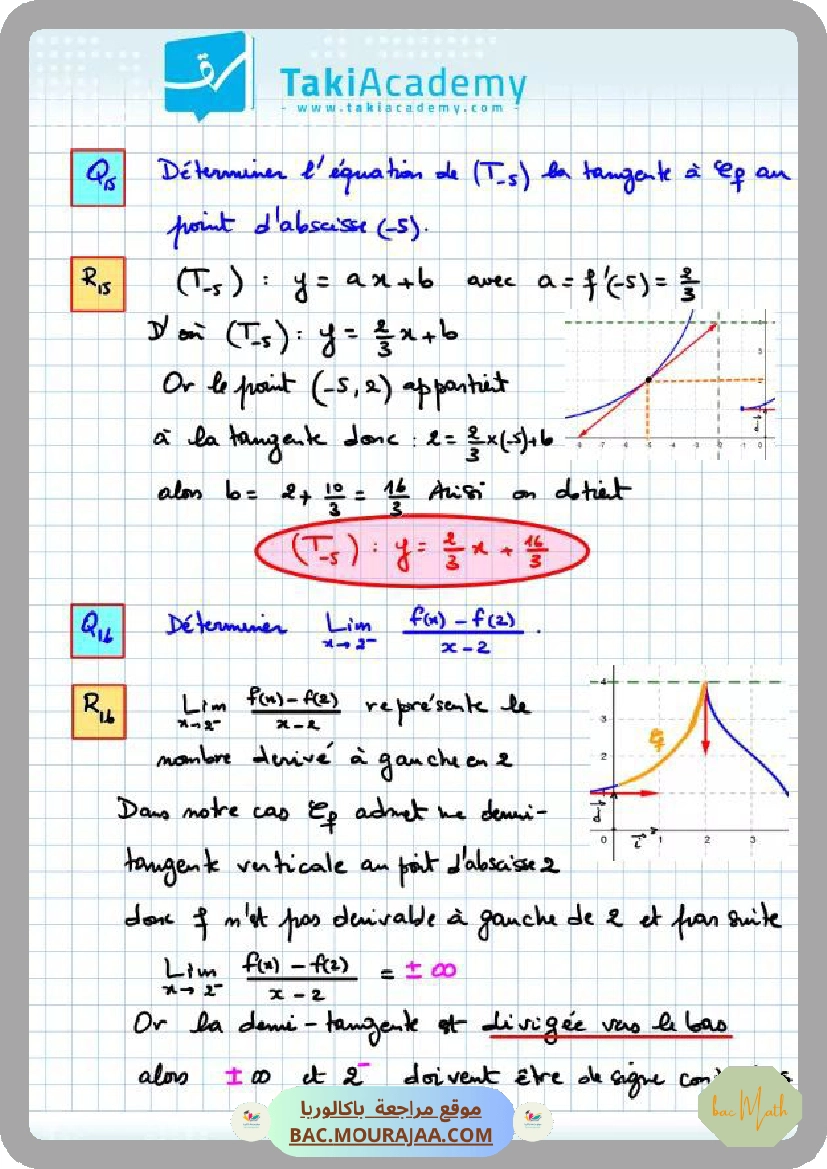 TakiAcademy
- www.takiacademy.com -
Q15 Déterminer l'équation de (T-5) la tangente à 𝒞f au
point d'abscisse (-5).
R15 (T-5) : y = ax+b avec a = f'(-5) = 2/3
D'où (T-5) : y = 2/3 x + b
Or le point (-5, 2) appartient
à la tangente donc : 2 = 2/3 × (-5) + b
alors b = 2 + 10/3 = 16/3 Ainsi on obtient
(T-5) : y = 2/3 x + 16/3
Q16 Déterminer Lim x→2⁻ f(x) - f(2) / x - 2 .
R16 Lim x→2⁻ f(x) - f(2) / x - 2 représente le
nombre dérivé à gauche en 2
Dans notre cas 𝒞f admet une demi-
tangente verticale au point d'abscisse 2
donc f n'est pas derivable à gauche de 2 et par suite
Lim x→2⁻ f(x) - f(2) / x - 2 = ± ∞
Or la demi-tangente est dirigée vers le bas
alors ± ∞ et 2⁻ doivent être de signe
موقع مراجعة باكالوريا
BAC.MOURAJAA.COM
bac Math